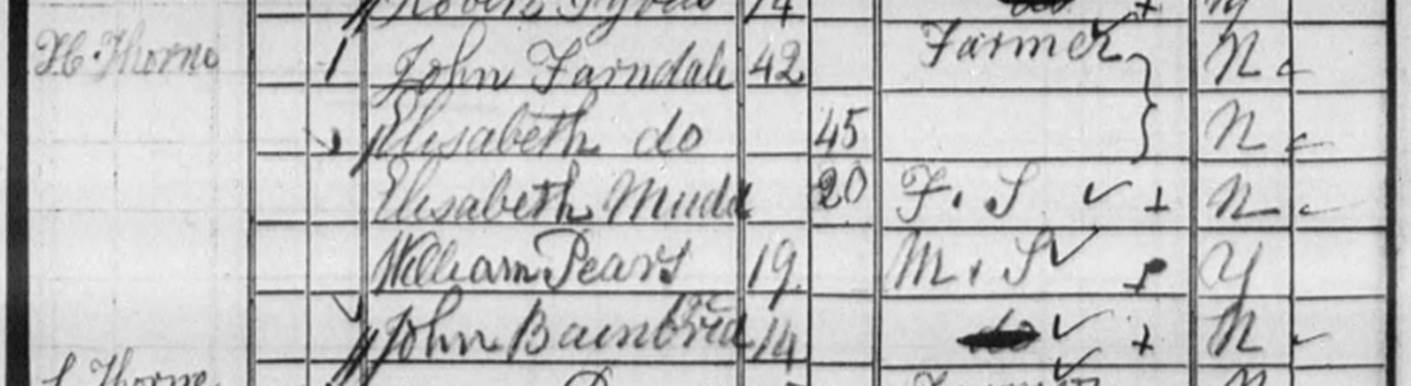 14 do Y
H. Thorne 1 John Farndale 42 Farmer N
Elisabeth do 45 N
Elisabeth Mudd 20 F. S N
William Pears 19 M. S Y
John Bainbridge 14 do N
Thorne